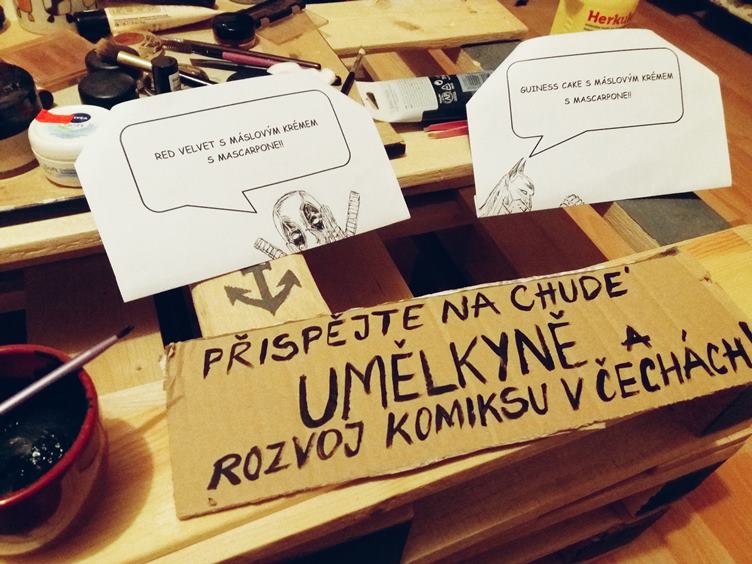 Herkul
NIVEA
RED VELVET S MÁSLOVÝM KRÉMEM
S MASCARPONE!!
GUINESS CAKE S MÁSLOVÝM KRÉMEM
S MASCARPONE!!
PŘISPĚJTE NA CHUDÉ
UMĚLKYNĚ A
ROZVOJ KOMIKSU V ČECHÁCH